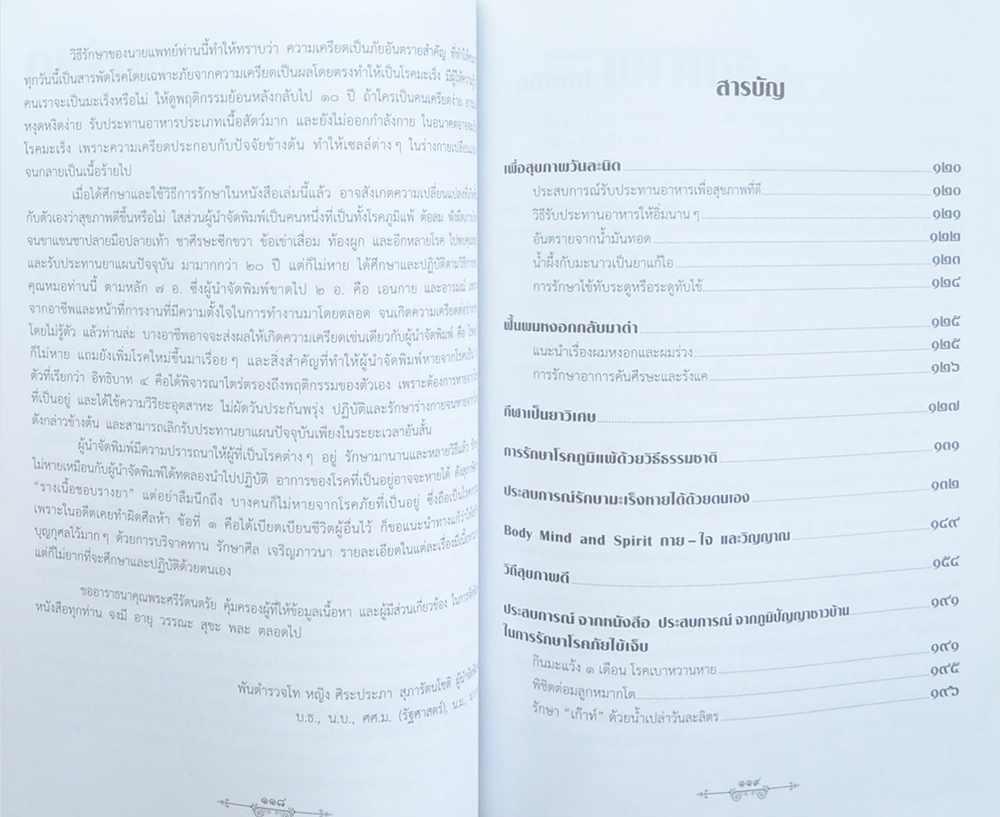 วิธีรักษาของนายแพทย์ท่านนี้ทำให้ทราบว่า ความเครียดเป็นภัยอันตรายสำคัญ
ทุกวันนี้เป็นสารพัดโรคโดยเฉพาะภัยจากความเครียดเป็นผลโดยตรงทำให้เป็นโรคมะเร็ง
คนเราจะเป็นมะเร็งหรือไม่ ให้ดูพฤติกรรมย้อนหลังกลับไป ๑๐ ปี ถ้าใครเป็นคนเครียดง่าย
หงุดหงิดง่าย รับประทานอาหารประเภทเนื้อสัตว์มาก และยังไม่ออกกำลังกาย
โรคมะเร็ง เพราะความเครียดประกอบกับปัจจัยข้างต้น ทำให้เซลล์ต่างๆ
จนกลายเป็นเนื้อร้ายไป
เมื่อได้ศึกษาและใช้วิธีการรักษาในหนังสือเล่มนี้แล้ว อาจสังเกตความเปลี่ยนแปลง
กับตัวเองว่าสุขภาพดีขึ้นหรือไม่ ใสส่วนผู้นำจัดพิมพ์เป็นคนหนึ่งที่เป็นทั้งโรคภูมิแพ้ ต้อลม
จนขาแขนชาปลายมือปลายเท้า ชาศีรษะซีกขวา ข้อเข่าเสื่อม ท้องผูก และอีกหลายโรค
และรับประทานยาแผนปัจจุบัน มามากกว่า ๒๐ ปี แต่ก็ไม่หาย ได้ศึกษาและปฏิบัติตาม
คุณหมอท่านนี้ ตามหลัก ๗ อ. ซึ่งผู้นำจัดพิมพ์ขาดไป ๒ อ. คือ เอนกาย และอารมณ์
จากอาชีพและหน้าที่การงานที่มีความตั้งใจในการทำงานมาโดยตลอด จนเกิดความเครียด
โดยไม่รู้ตัว แล้วท่านล่ะ บางอาชีพอาจจะส่งผลให้เกิดความเครียดเช่นเดียวกับผู้นำจัดพิมพ์ คือ
ก็ไม่หาย แถมยังเพิ่มโรคใหม่ขึ้นมาเรื่อยๆ และสิ่งสำคัญที่ทำให้ผู้นำจัดพิมพ์หายจาก
ตัวที่เรียกว่า อิทธิบาท ๔ คือได้พิจารณาไตร่ตรองถึงพฤติกรรมของตัวเอง
ที่เป็นอยู่ และได้ใช้ความวิริยะอุตสาหะ ไม่ผัดวันประกันพรุ่ง ปฏิบัติและรักษาร่างกาย
ดังกล่าวข้างต้น และสามารถเลิกรับประทานยาแผนปัจจุบันเพียงในระยะเวลาอันสั้น
ผู้นำจัดพิมพ์มีความปรารถนาให้ผู้ที่เป็นโรคต่างๆ อยู่ รักษามานานและหลายวิธีแล้ว
ไม่หายเหมือนกับผู้นำจัดพิมพ์ได้ทดลองนำไปปฏิบัติ อาการของโรคที่เป็นอยู่อาจจะหายได้
“รางเนื้อชอบรางยา” แต่อย่าลืมนึกถึง บางคนก็ไม่หายจากโรคภัยที่เป็นอยู่
เพราะในอดีตเคยทำผิดศีลห้า ข้อที่ ๑ คือได้เบียดเบียนชีวิตผู้อื่นไว้ ก็ขอแนะนำ
บุญกุศลไว้มากๆ ด้วยการบริจาคทาน รักษาศีล เจริญภาวนา รายละเอียดในแต่ละเรื่อง
แต่ก็ไม่ยากที่จะศึกษาและปฏิบัติด้วยตนเอง
ขออาราธนาคุณพระศรีรัตนตรัย คุ้มครองผู้ที่ให้ข้อมูลเนื้อหา และผู้มีส่วนเกี่ยวข้อง
หนังสือทุกท่าน จงมี อายุ วรรณะ สุขะ พละ ตลอดไป
พันตำรวจโท หญิง ศิระประภา สุภารัตนโชติ
บ.ธ., น.บ., ศศ.ม. (รัฐศาสตร์), น.ม.
๑๑๘
สารบัญ
เพื่อสุขภาพวันละนิด ๑๒๐
ประสบการณ์รับประทานอาหารเพื่อสุขภาพที่ดี ๑๒๐
วิธีรับประทานอาหารให้อิ่มนานๆ ๑๒๑
อันตรายจากน้ำมันทอด ๑๒๒
น้ำผึ้งกับมะนาวเป็นยาแก้ไอ ๑๒๓
การรักษาไข้ทับระดูหรือระดูทับไข้ ๑๒๔
ฟื้นผมหงอกกลับมาดำ ๑๒๕
แนะนำเรื่องผมหงอกและผมร่วง ๑๒๕
การรักษาอาการคันศีรษะและรังแค ๑๒๖
กีฬาเป็นยาวิเศษ ๑๒๗
การรักษาโรคภูมิแพ้ด้วยวิธีธรรมชาติ ๑๓๑
ประสบการณ์รักษามะเร็งหายได้ด้วยตนเอง ๑๓๒
Body Mind and Spirit กาย – ใจ และวิญญาณ ๑๔๙
วิถีสุขภาพดี ๑๕๔
ประสบการณ์ จากหนังสือ ประสบการณ์ จากภูมิปัญญาชาวบ้าน ๑๙๑
ในการรักษาโรคภัยไข้เจ็บ
กินมะแว้ง ๑ เดือน โรคเบาหวานหาย ๑๙๑
พิชิตต่อมลูกหมากโต ๑๙๕
รักษา “เก๊าท์” ด้วยน้ำเปล่าวันละลิตร ๑๙๖
๑๑๙